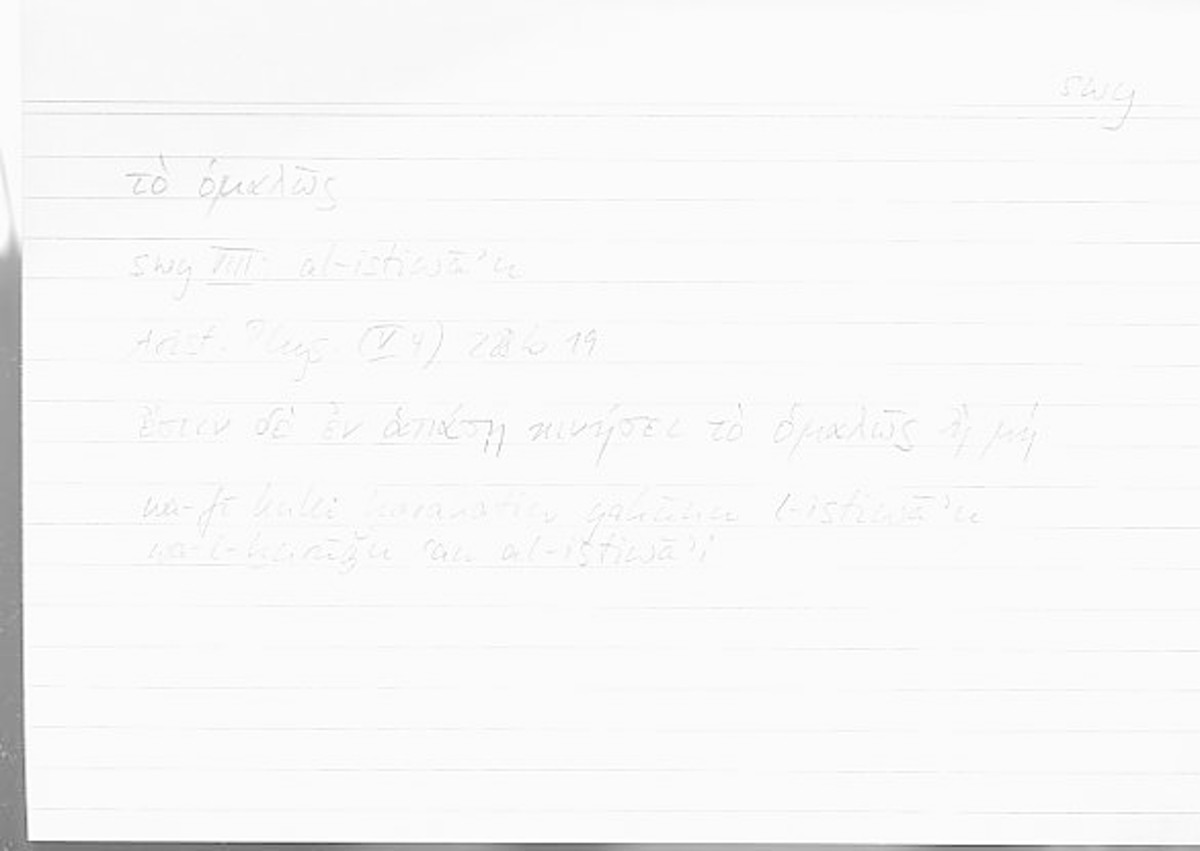 swy
τὸ ὁμαλῶς
swy VIII: al-istiwāʾu
Arist. Phys. (V 4) 228b 19
ἔστιν δὲ ἐν ἁπάσῃ κινήσει τὸ ὁμαλῶς ἢ μή
wa-fī kulli ḥarakatin yakūnu l-istiwāʾu
wa-l-ḫurūǧu ʿan al-istiwāʾi